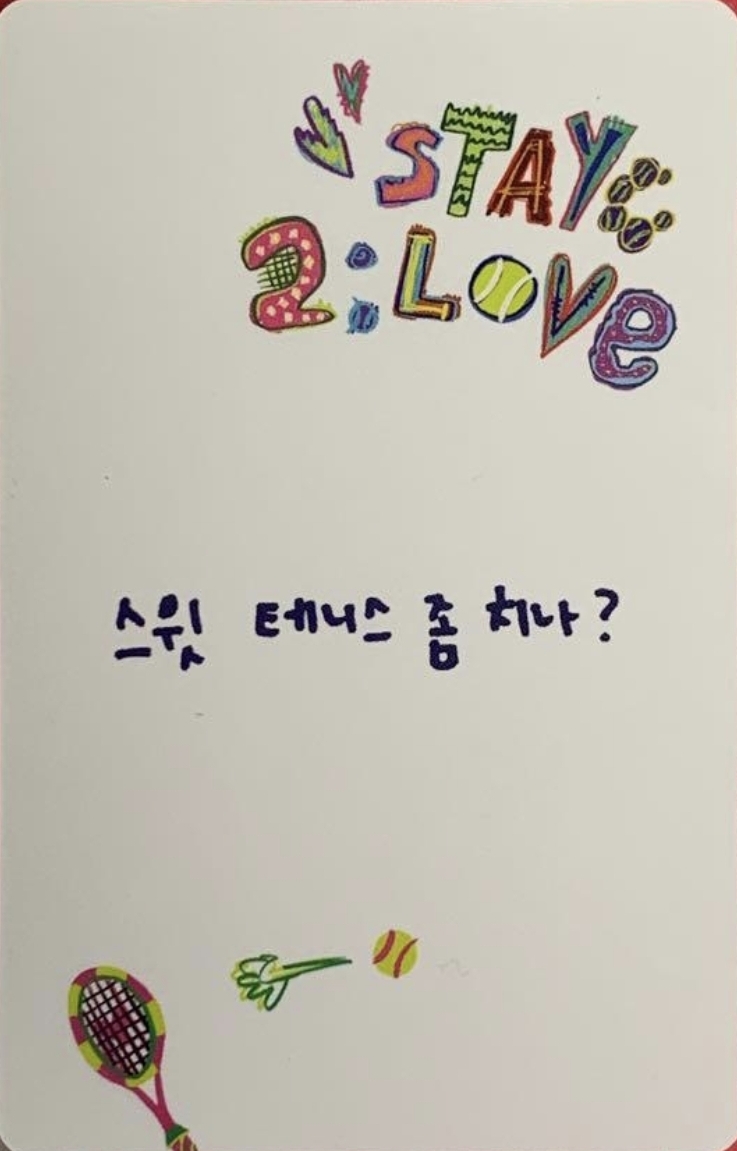 STAYC
2:LOVe
스윗 테니스 좀 치나?